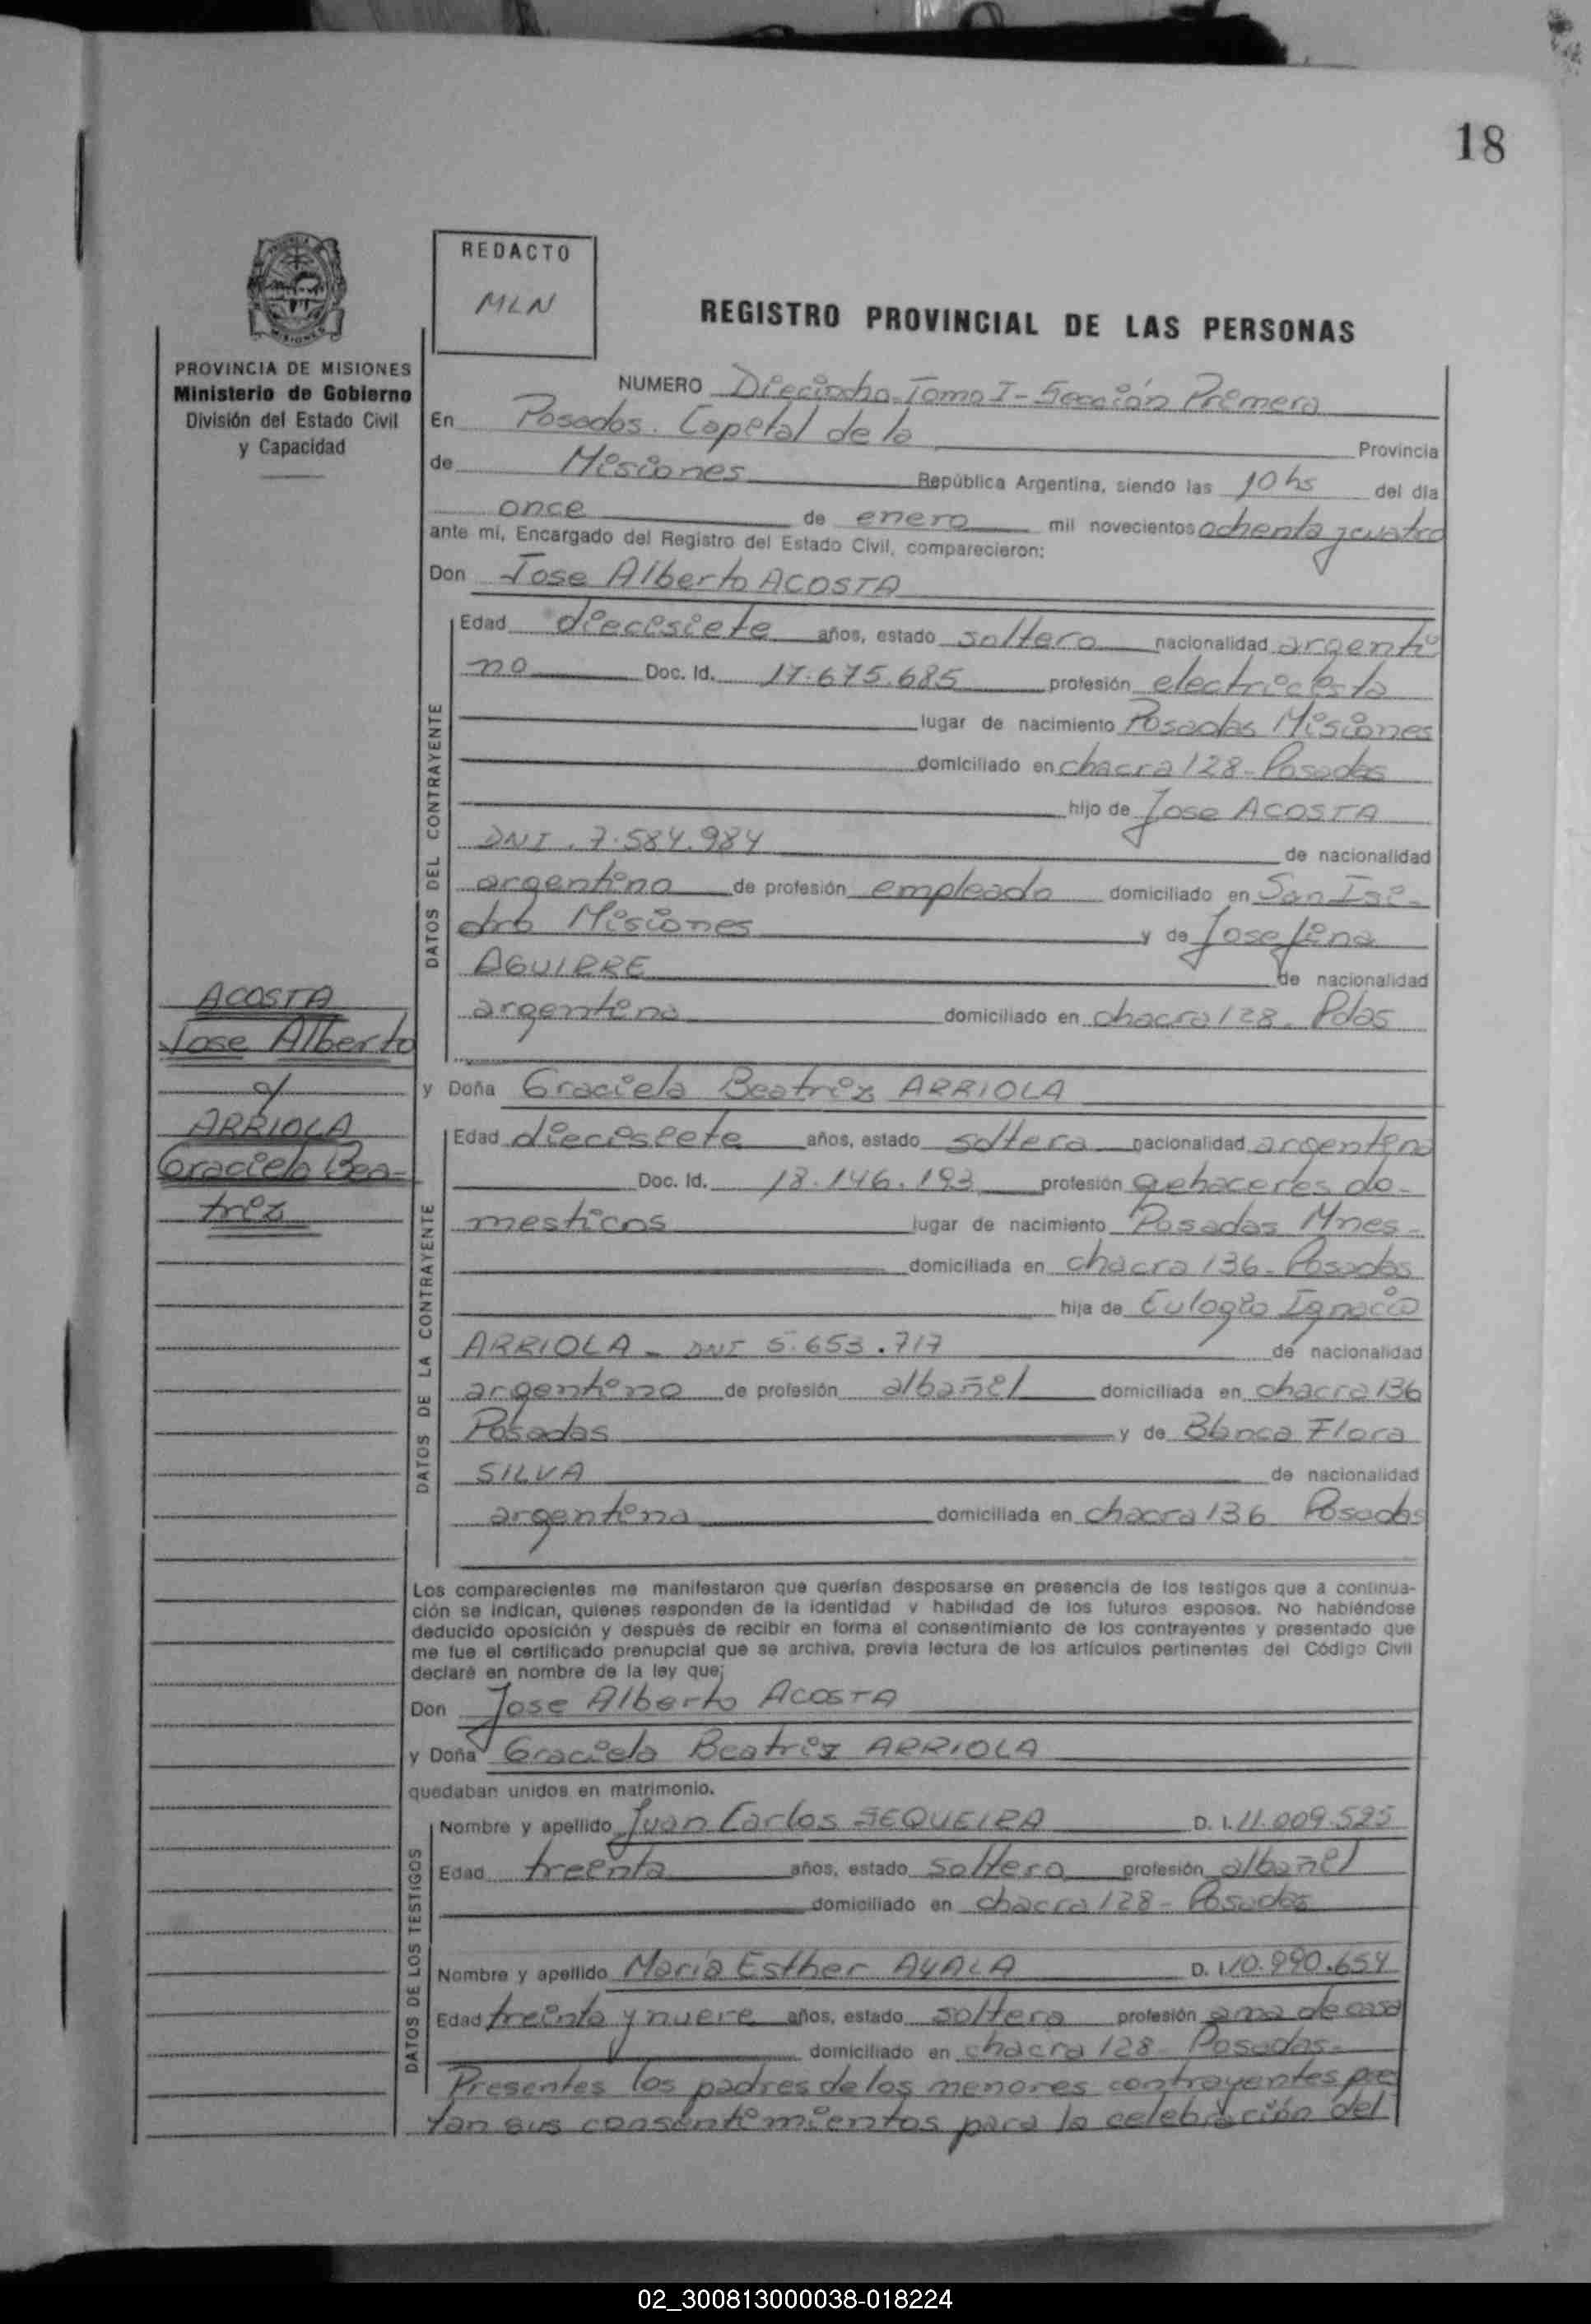 18
REDACTO
MLN
REGISTRO PROVINCIAL DE LAS PERSONAS
PROVINCIA DE MISIONES
Ministerio de Gobierno
División del Estado Civil
y Capacidad
NUMERO Dieciocho Tomo I - Sección Primera
En Posadas. Capital de la Provincia
de Misiones República Argentina, siendo las 10 hs del día
once de enero mil novecientos ochenta y cuatro
ante mi, Encargado del Registro del Estado Civil, comparecieron:
Don Jose Alberto ACOSTA
DATOS DEL CONTRAYENTE
Edad diecisiete años, estado soltero nacionalidad argenti
no Doc. Id. 17.675.685 profesión electricista
lugar de nacimiento Posadas Misiones
domiciliado en chacra 128 - Posadas
hijo de Jose ACOSTA
DNI. 7.584.984 de nacionalidad
argentino de profesión empleado domiciliado en San Isi-
dro Misiones y de Josefina
AGUIRRE de nacionalidad
argentina domiciliado en chacra 128. Pdas
ACOSTA
Jose Alberto
c/
ARRIOLA
Graciela Bea-
triz
y Doña Graciela Beatriz ARRIOLA
DATOS DE LA CONTRAYENTE
Edad diecisiete años, estado soltera nacionalidad argentina
Doc. Id. 18.146.193 profesión qehaceres do-
mesticos lugar de nacimiento Posadas Mnes -
domiciliada en chacra 136 - Posadas
hija de Eulogio Ignacio
ARRIOLA - DNI 5.653.717 de nacionalidad
argentino de profesión albañil domiciliada en chacra 136
Posadas y de Blanca Flora
SILVA de nacionalidad
argentina domiciliada en chacra 136 Posadas
Los comparecientes me manifestaron que querían desposarse en presencia de los testigos que a continua-
ción se indican, quienes responden de la identidad y habilidad de los futuros esposos. No habiéndose
deducido oposición y después de recibir en forma el consentimiento de los contrayentes y presentado que
me fue el certificado prenupcial que se archiva, previa lectura de los artículos pertinentes del Código Civil
declaré en nombre de la ley que;
Don Jose Alberto ACOSTA
y Doña Graciela Beatriz ARRIOLA
quedaban unidos en matrimonio.
DATOS DE LOS TESTIGOS
Nombre y apellido Juan Carlos SEQUEIRA D. I. 11.009.525
Edad treinta años, estado soltero profesión albañil
domiciliado en chacra 128 - Posadas
Nombre y apellido Maria Esther AYALA D. I. 10.990.654
Edad treinta y nueve años, estado soltera profesión ama de casa
domiciliado en chacra 128 - Posadas.
Presentes los padres de los menores contrayentes pres
tan sus consentimientos para la celebración del
02_300813000038-018224